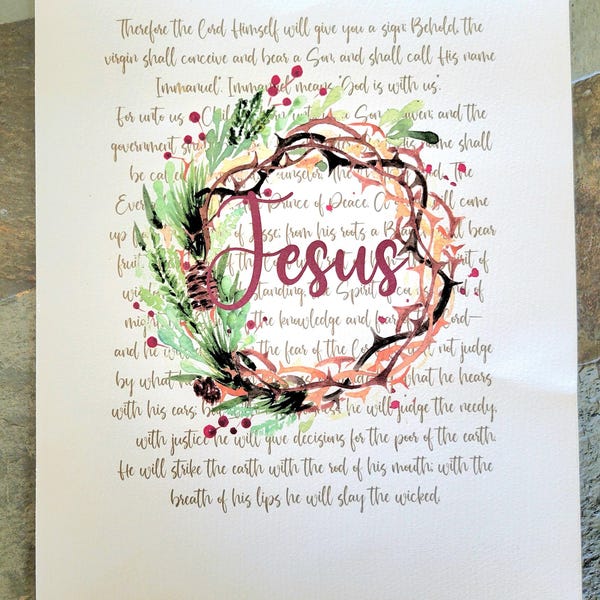 Therefore the Lord Himself will give you a sign: Behold, the
virgin shall conceive and bear a Son, and shall call His name
Immanuel". Immanuel means "God is with us".
For unto us a Child born, unto us a Son given; and the
government His name shall
be called Counselor, The The
Ever Prince of Peace. A will come
up of Jesse; from his roots a Bear
fruit. of the of
Jesus
standing, the Spirit of couns of
the knowledge and fear of Lord—
and he the fear of the not judge
by what what he hears
with his ears; he will judge the needy,
with justice he will give decisions for the poor of the earth.
He will strike the earth with the rod of his mouth; with the
breath of his lips he will slay the wicked.